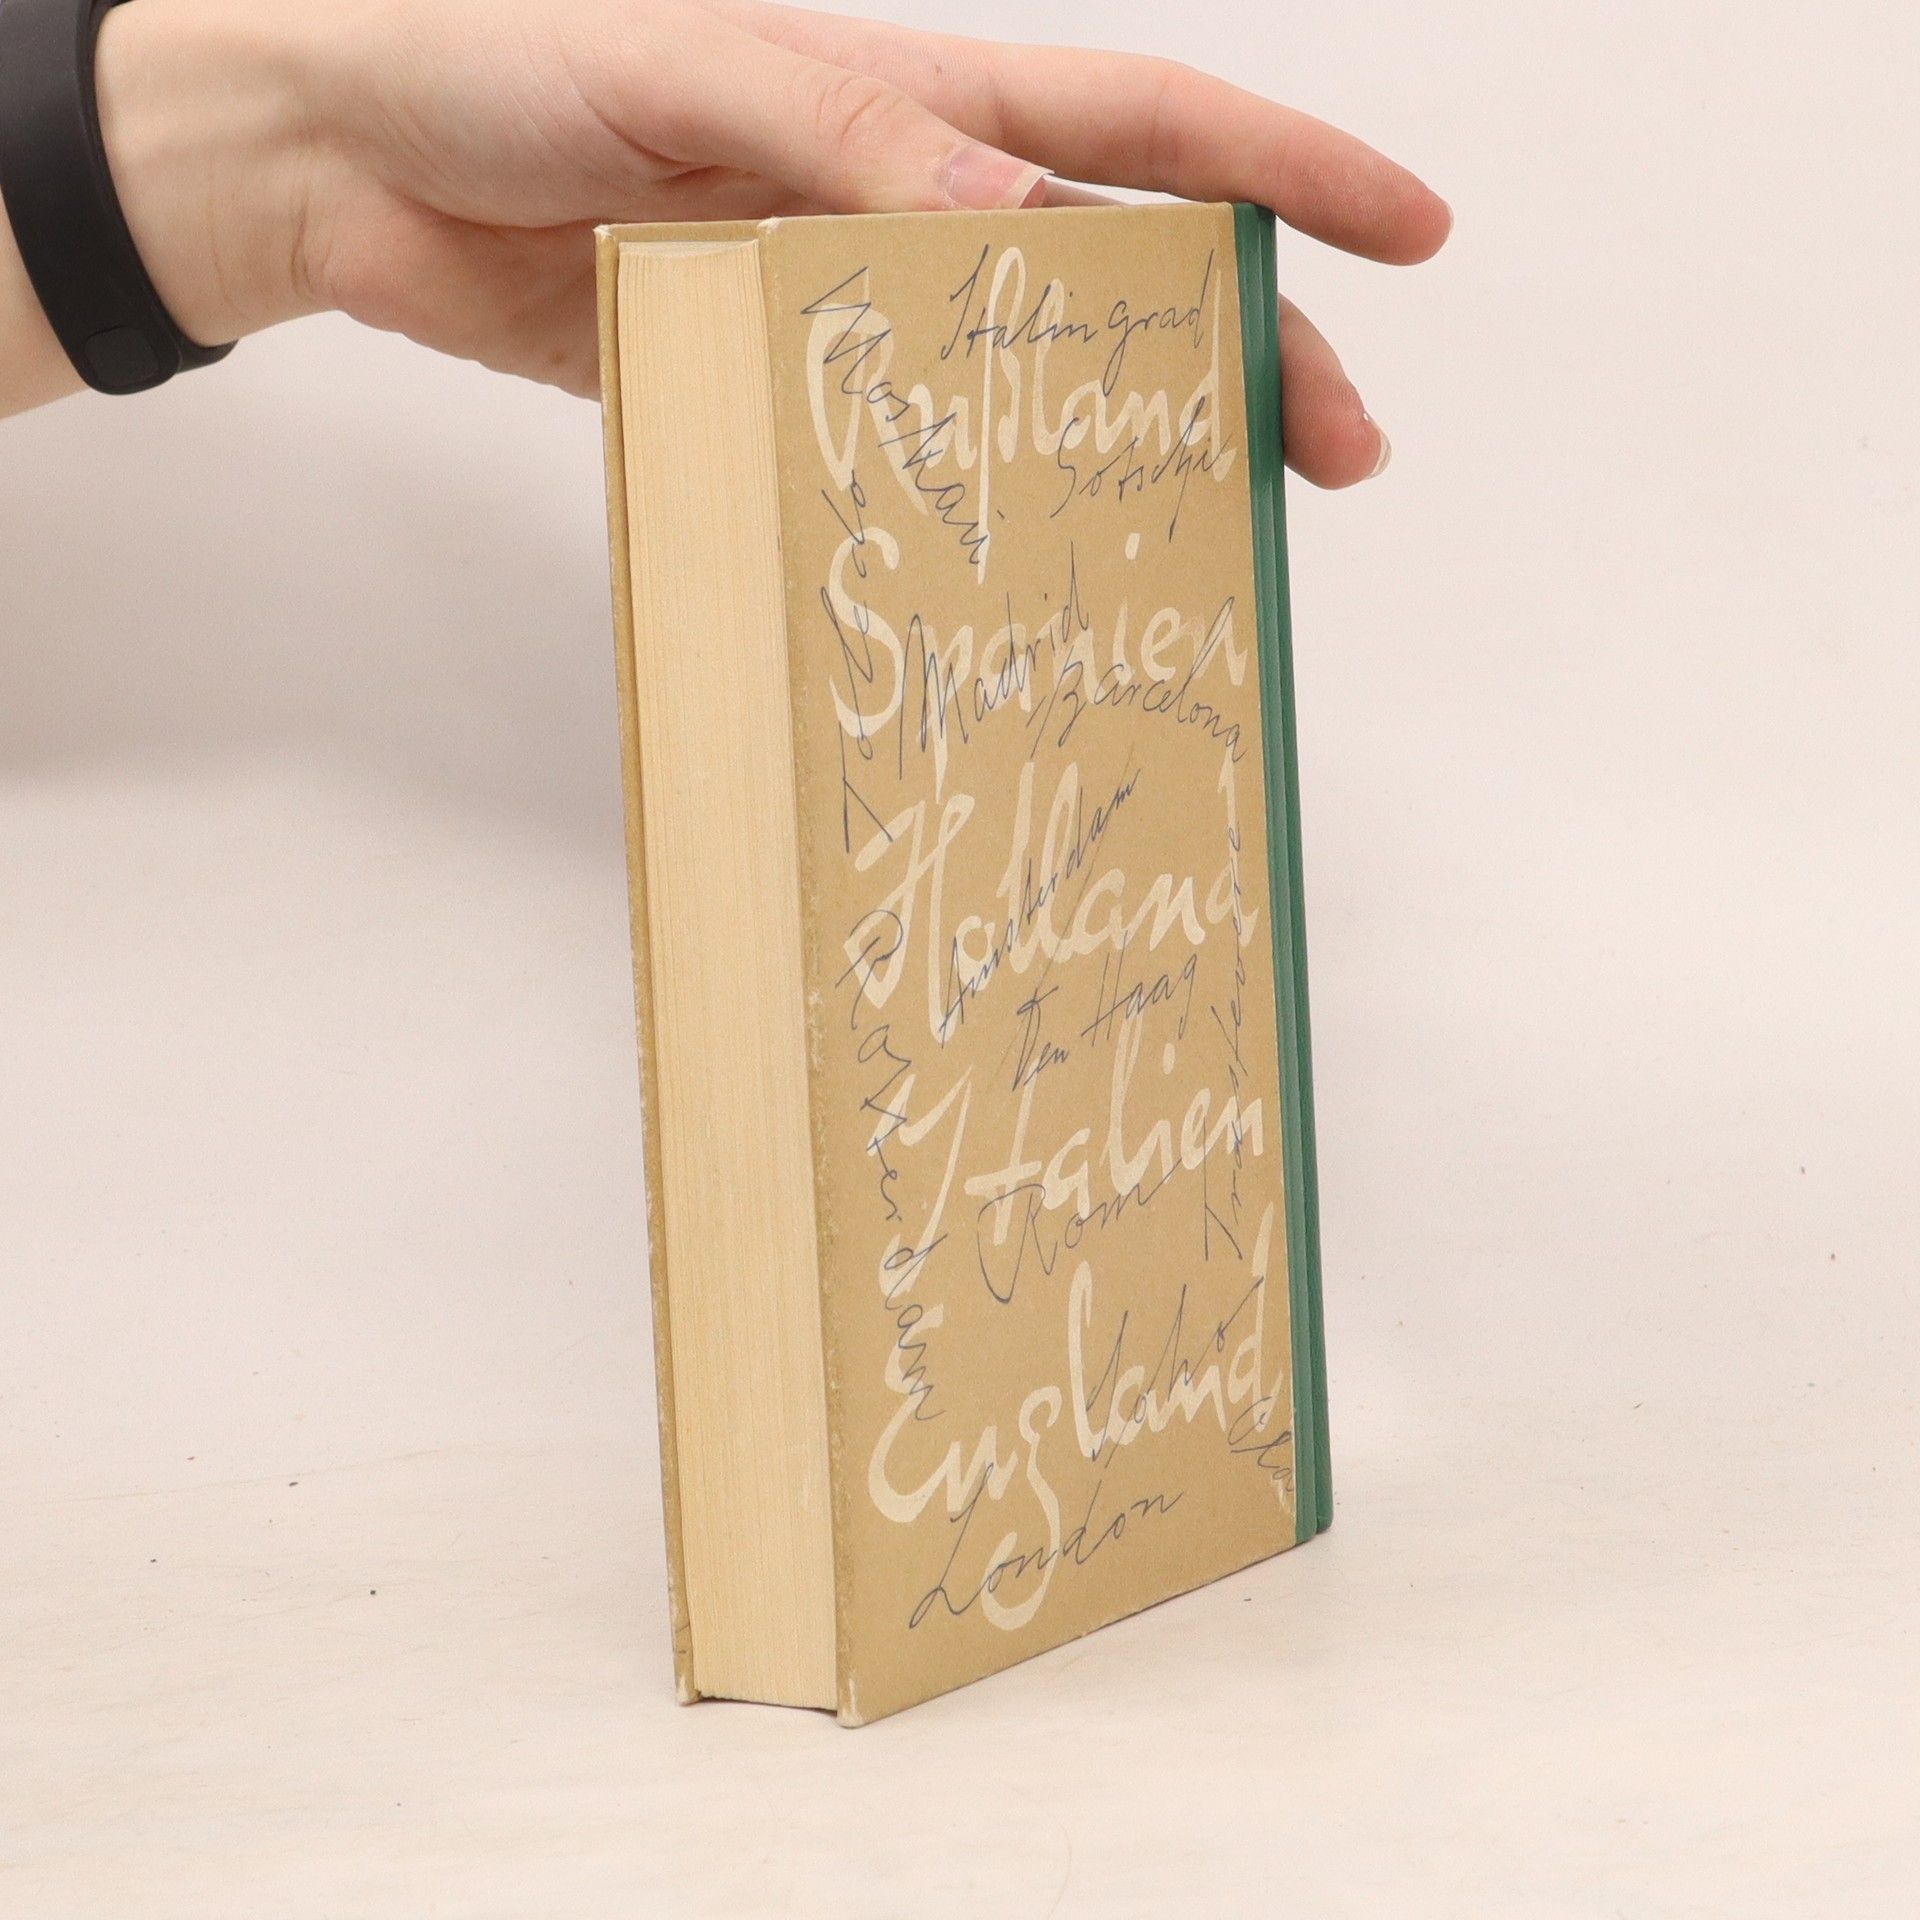 Stalingrad
Moskau
Rußland
Sotschi
Toledo
Spanien
Madrid
Barcelona
Holland
Amsterdam
Den Haag
Rotterdam
Trastevere
Italien
Rom
England
Soho
London